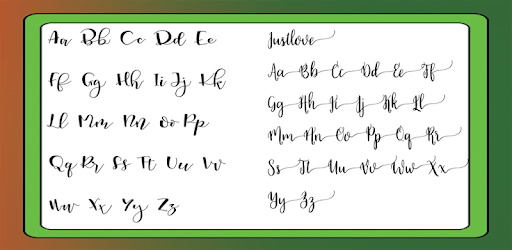 Aa Bb Cc Dd Ee
Ff Gg Hh Ii Jj Kk
Ll Mm Nn Oo Pp
Qq Rr Ss Tt Uu Vv
Ww Xx Yy Zz
Justlove
Aa Bb Cc Dd Ee Ff
Gg Hh Ii Jj Kk Ll
Mm Nn Oo Pp Qq Rr
Ss Tt Uu Vv Ww Xx
Yy Zz